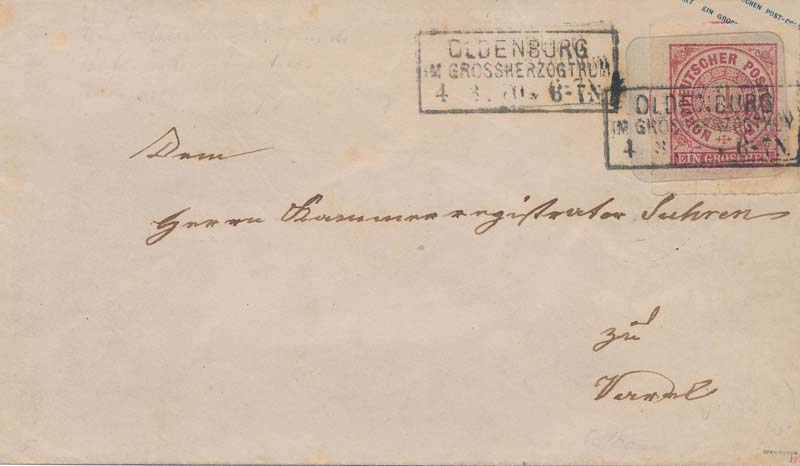 OLDENBURG
IM GROSSHERZOGTHUM
4 8 70 6-7N
OLDENBURG
IM GROSSHERZOGTHUM
4 8 6-7N
NORDDEUTSCHER POST
EIN GROSCHEN
Dem
Herrn Kammerregistrator Suhren
zu
Varel